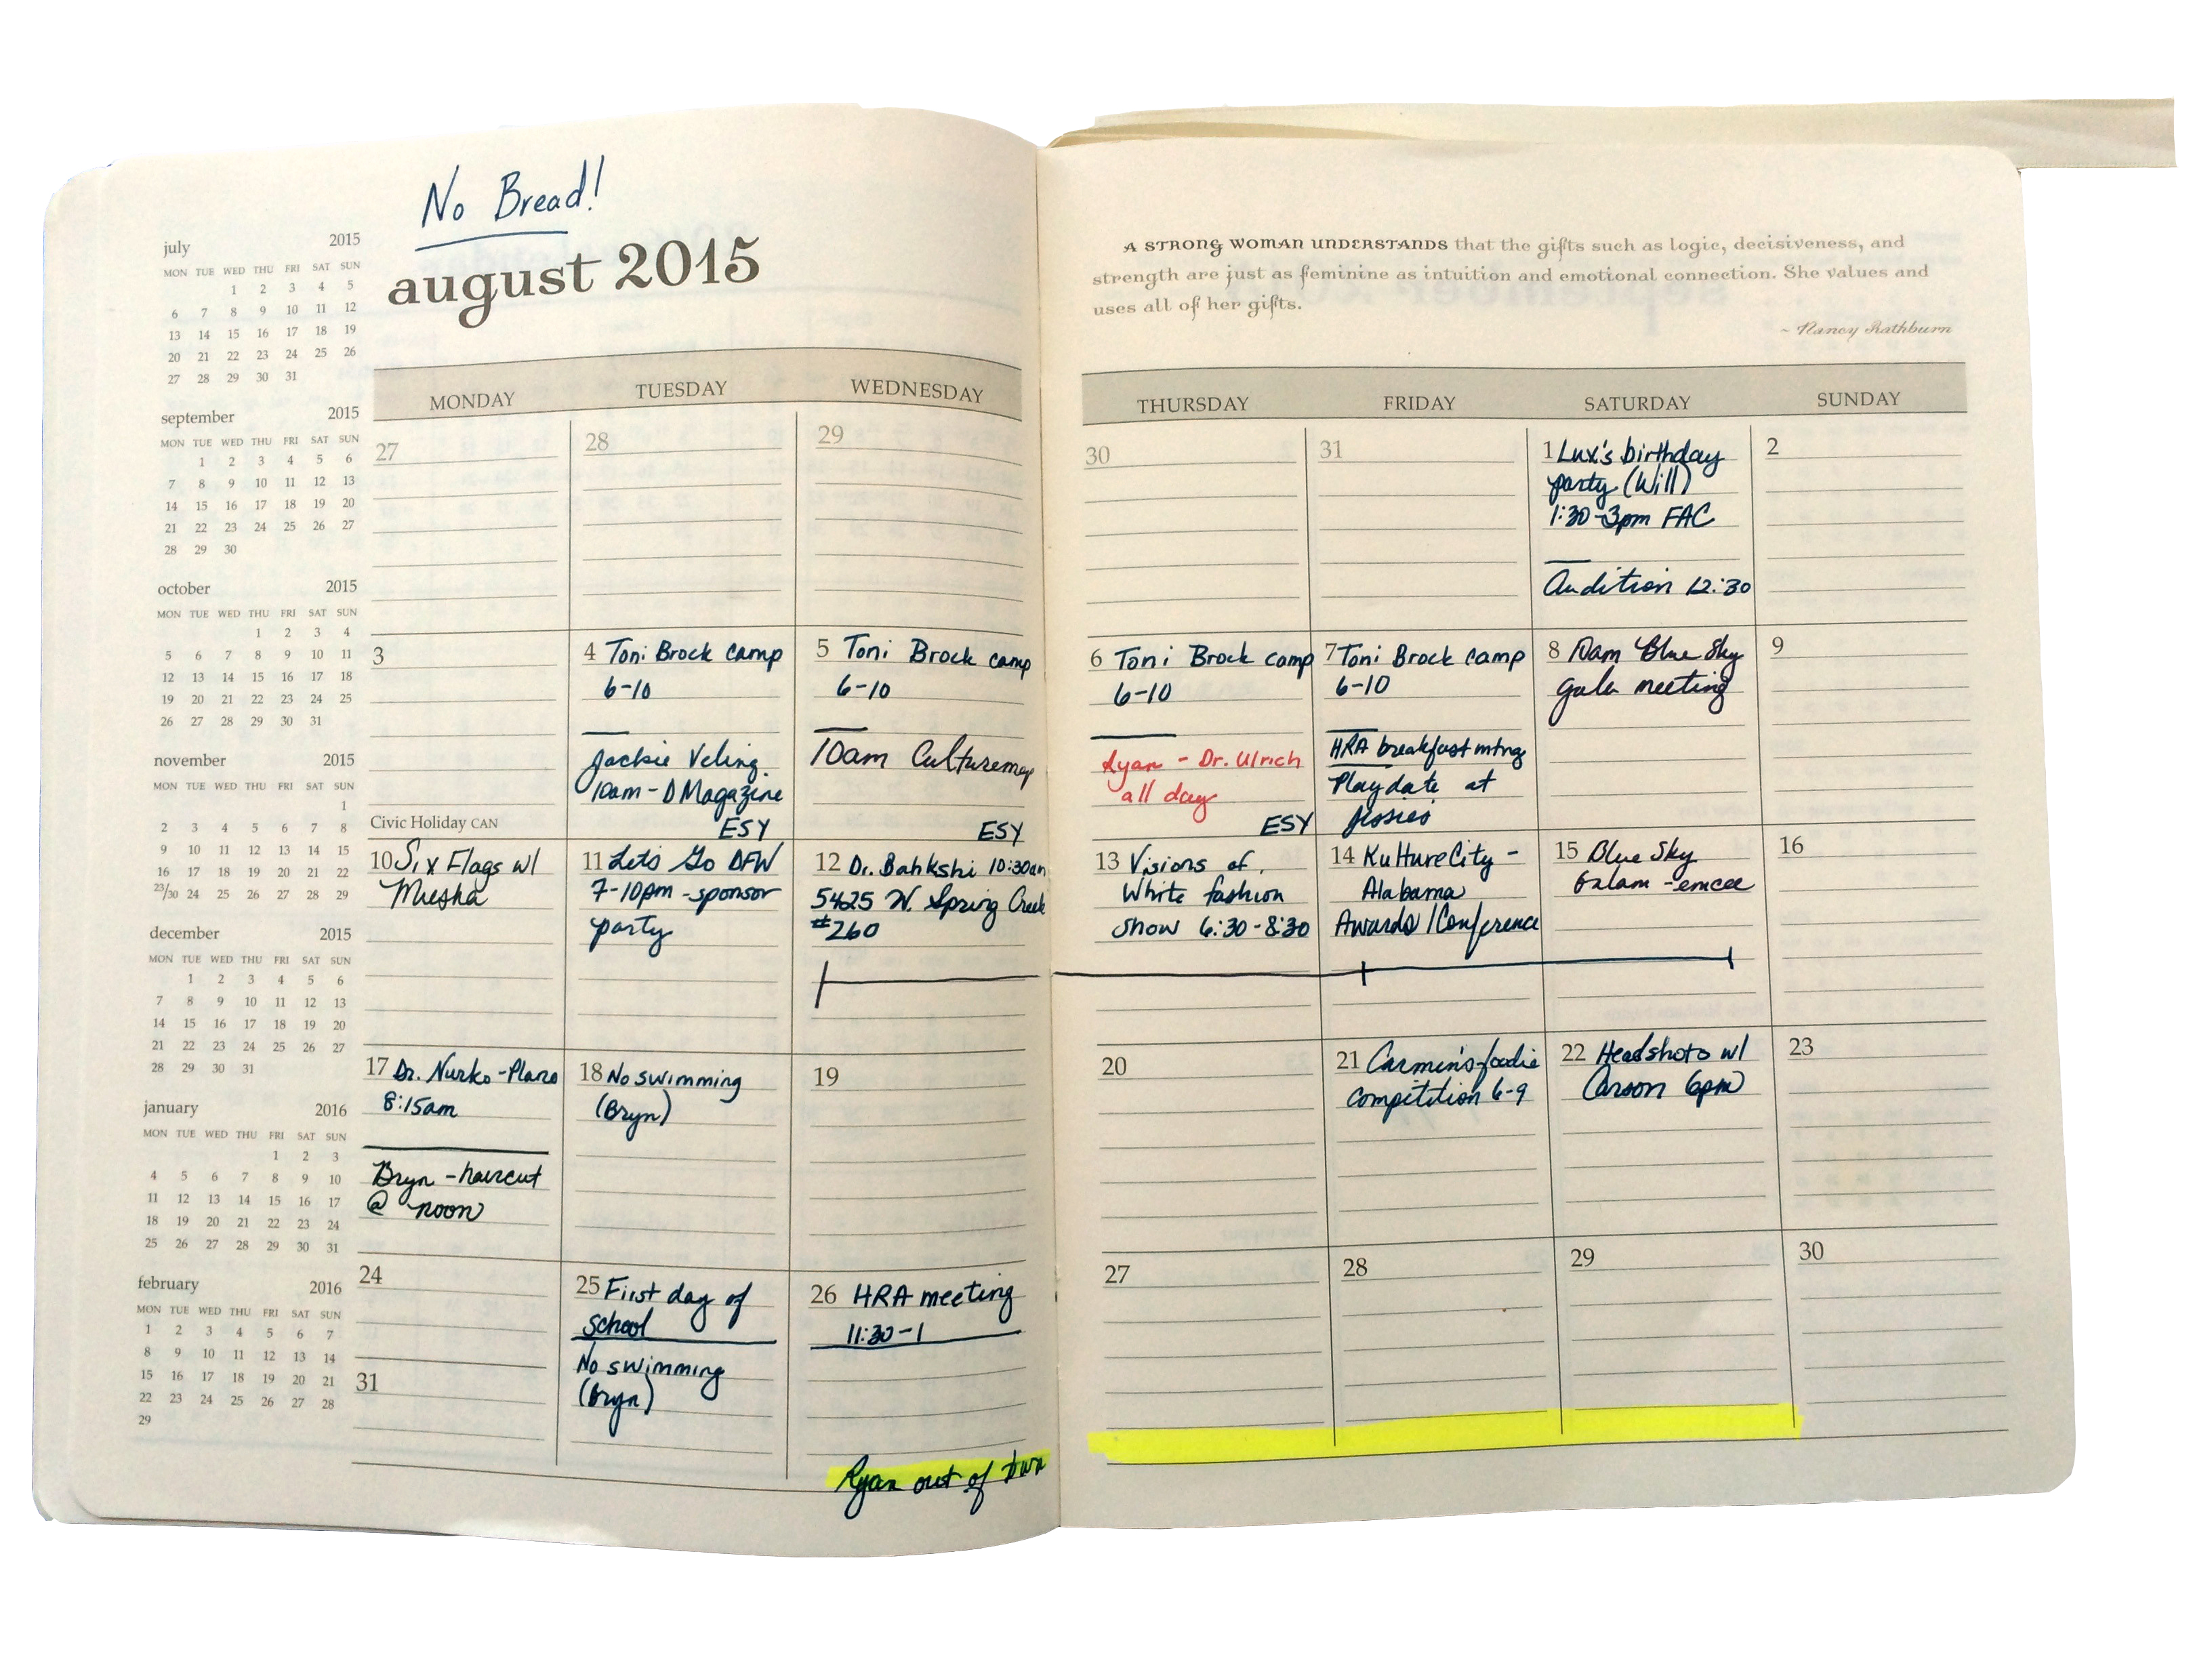 No Bread!
august 2015
july 2015
MON TUE WED THU FRI SAT SUN
1 2 3 4 5
6 7 8 9 10 11 12
13 14 15 16 17 18 19
20 21 22 23 24 25 26
27 28 29 30 31
september 2015
MON TUE WED THU FRI SAT SUN
1 2 3 4 5 6
7 8 9 10 11 12 13
14 15 16 17 18 19 20
21 22 23 24 25 26 27
28 29 30
october 2015
MON TUE WED THU FRI SAT SUN
1 2 3 4
5 6 7 8 9 10 11
12 13 14 15 16 17 18
19 20 21 22 23 24 25
26 27 28 29 30 31
november 2015
MON TUE WED THU FRI SAT SUN
1
2 3 4 5 6 7 8
9 10 11 12 13 14 15
16 17 18 19 20 21 22
23/30 24 25 26 27 28 29
december 2015
MON TUE WED THU FRI SAT SUN
1 2 3 4 5 6
7 8 9 10 11 12 13
14 15 16 17 18 19 20
21 22 23 24 25 26 27
28 29 30 31
january 2016
MON TUE WED THU FRI SAT SUN
1 2 3
4 5 6 7 8 9 10
11 12 13 14 15 16 17
18 19 20 21 22 23 24
25 26 27 28 29 30 31
february 2016
MON TUE WED THU FRI SAT SUN
1 2 3 4 5 6 7
8 9 10 11 12 13 14
15 16 17 18 19 20 21
22 23 24 25 26 27 28
29
A STRONG WOMAN UNDERSTANDS that the gifts such as logic, decisiveness, and
strength are just as feminine as intuition and emotional connection. She values and
uses all of her gifts.
~ Nancy Rathburn
MONDAY TUESDAY WEDNESDAY THURSDAY FRIDAY SATURDAY SUNDAY
27
28
29
30
31
1 Lux's birthday
party (Will)
1:30-3pm FAC
Audition 12:30
2
3
Civic Holiday CAN
4 Toni Brock camp
6-10
Jackie Veling
10am - D Magazine
ESY
5 Toni Brock camp
6-10
10am Culturemap
ESY
6 Toni Brock camp
6-10
Ryan - Dr. Ulrich
all day
ESY
7 Toni Brock camp
6-10
HRA breakfast mtng
Playdate at
8 Blue Sky
gala meeting
9
10 Six Flags w/
11 Let's Go DFW
7-10pm - sponsor
party
12 Dr. Bahkshi 10:30am
5425 W. Spring Creek
#260
13 Visions of
White fashion
show 6:30-8:30
14 KultureCity -
Alabama
Awards/Conference
15 Blue Sky
-emcee
16
17 Dr. Nurko - Plano
8:15am
Bryn - haircut
@ noon
18 No swimming
(Bryn)
19
20
21 Carmen's foodie
competition 6-9
22 Headshots w/
Carson 6pm
23
24
31
25 First day of
school
No swimming
(Bryn)
26 HRA meeting
11:30-1
Ryan out of town
27
28
29
30